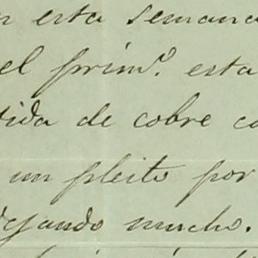 n esta semana
el prim.º esta
tida de cobre co
un pleito por
dejando mucho.